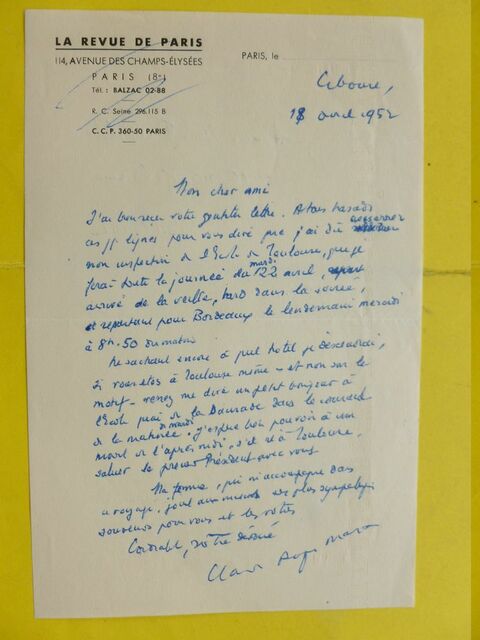 LA REVUE DE PARIS
114, AVENUE DES CHAMPS-ÉLYSÉES
PARIS (8e)
Tél. : BALZAC 02-88
R. C. Seine 296.115 B
C. C. P. 360-50 PARIS
PARIS, le
Ciboure,
18 avril 1952
Mon cher ami
J'ai bien reçu votre gentille lettre. A tous hasards
ces lignes pour vous dire que j'ai dû
mon inspection de l'Ecole de Toulouse, que je
ferai toute la journée du mardi 22 avril,
arrivé de la veille, tard dans la soirée,
et repartant pour Bordeaux le lendemain mercredi
à 8h.50 du matin.
Ne sachant encore à quel hotel je descendrai,
si vous êtes à Toulouse même - et non sur le
motif - venez me dire un petit bonjour à
l'Ecole quai de la Daurade dans le courant
de la matinée de mardi. J'espère bien pouvoir à un
moment de l'après-midi, s'il est à Toulouse,
saluer le Président avec vous.
Ma femme, qui m'accompagne dans
ce voyage, joint aux miens ses plus sympathiques
souvenirs pour vous et les vôtres
votre dévoué